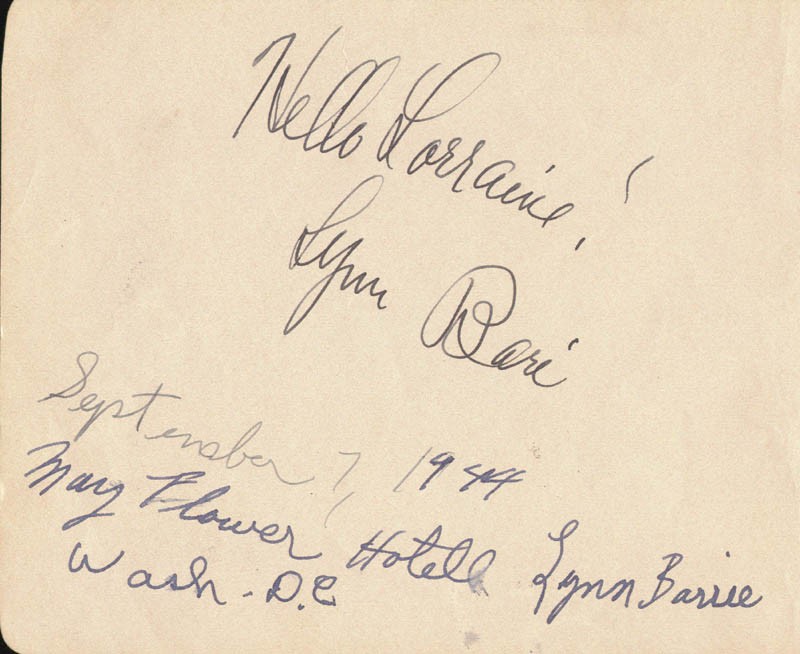 Hello Lorraine!
Lynn Bari
September 7, 1944
May Flower Hotell Lynn Barrie
Wash. D.C